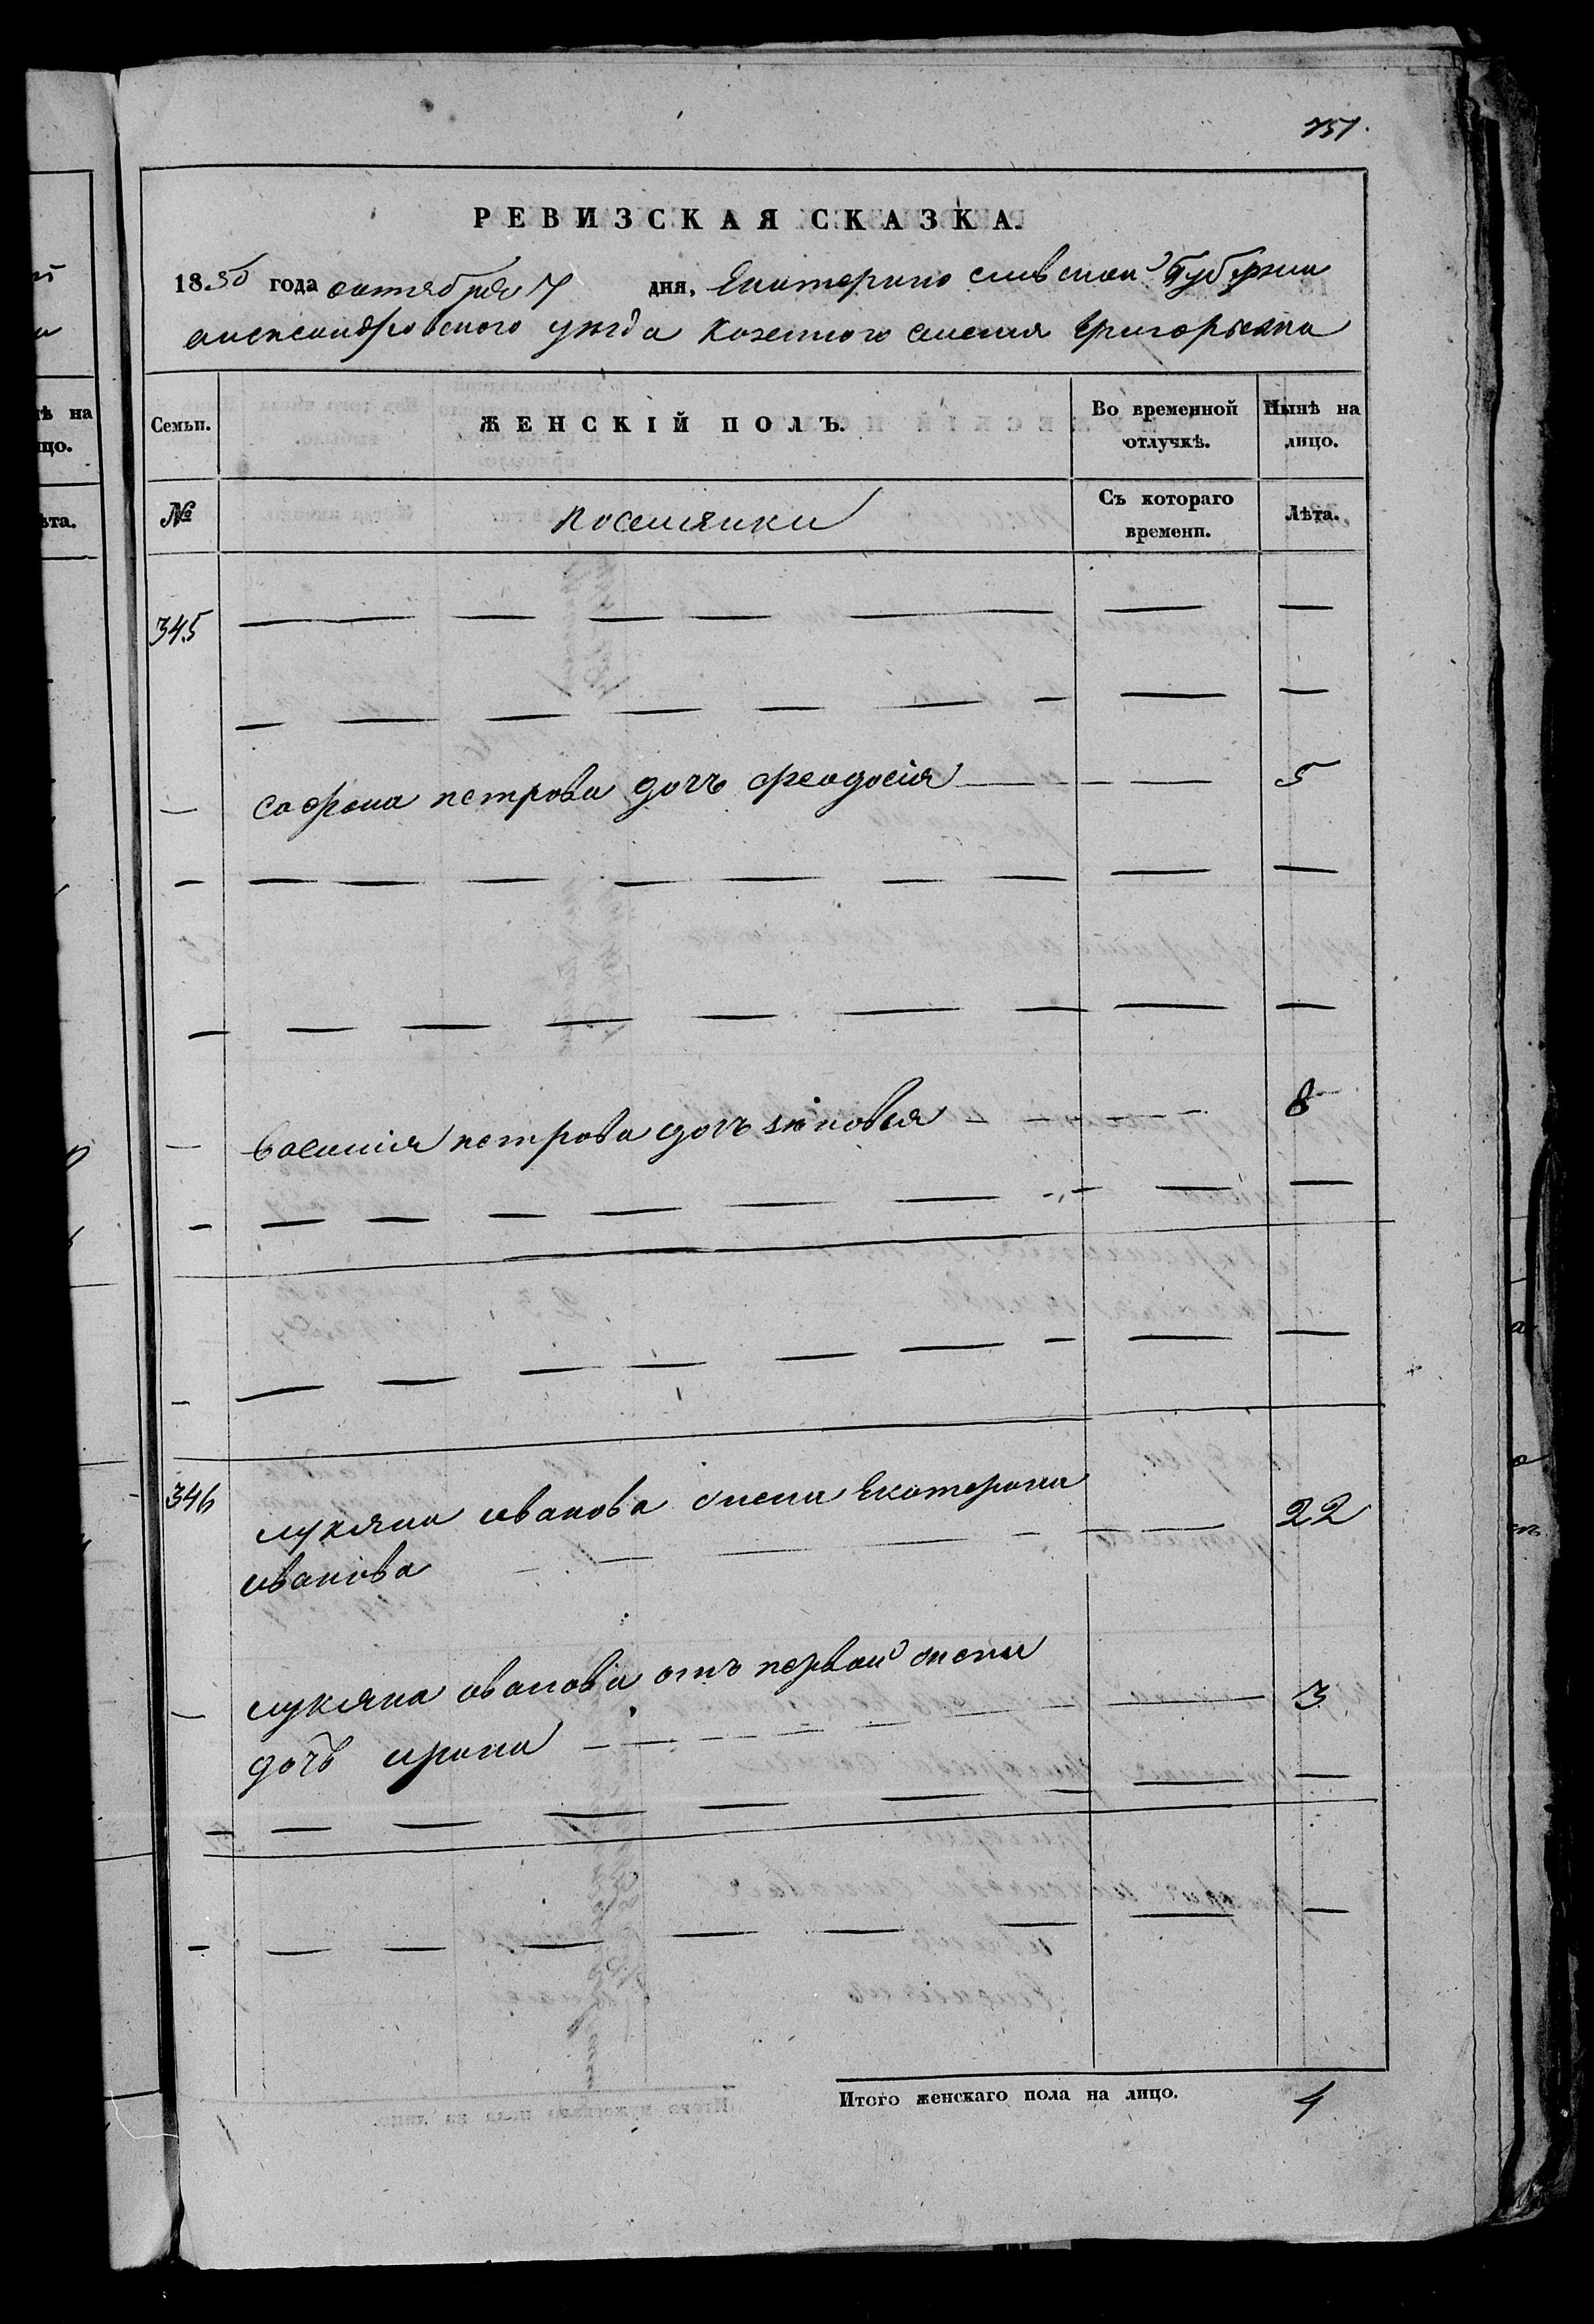 751.
РЕВИЗСКАЯ СКАЗКА.
1850 года октября 7 дня, Екатерино славской Губернии
александровского уезда Козенного селения Григорьевка
Семьи. ЖЕНСКІЙ ПОЛЪ. Во временной отлучкѣ. Нынѣ на лицо.
№ поселянки Съ котораго времени. Лѣта.
345
Софона петрова дочъ феодосія 5
Василія петрова дочъ зѣновья 8
346 лукяна иванова жена Екатерина 22
иванова
лукяна иванова отъ первой жены 3
дочъ ирина
Итого женскаго пола на лицо. 4